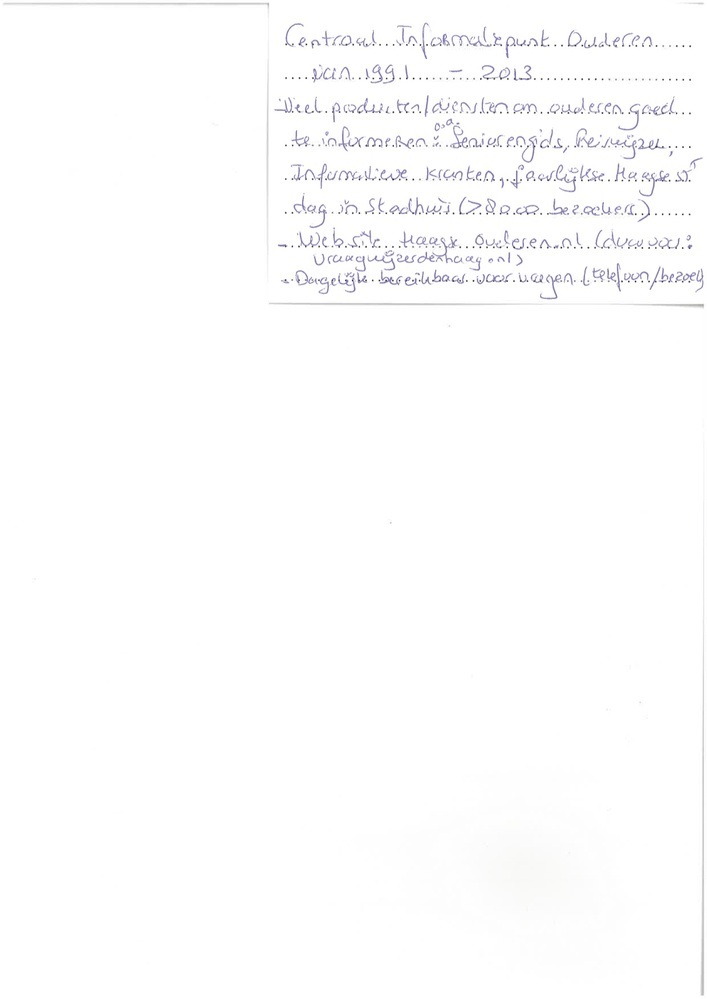 Centraal Informatiepunt Ouderen
van 1991 - 2013
- Veel producten/diensten om ouderen goed
te informeren: o.a. Seniorengids, Reiswijzer,
Informatieve kranten, jaarlijkse Haagse
dag in Stadhuis (>8000 bezoekers)
- Website Haagse Ouderen.nl (daarvoor:
vraagwijzerdenhaag.nl)
- Dagelijks bereikbaar voor vragen (telefoon/bezoek)